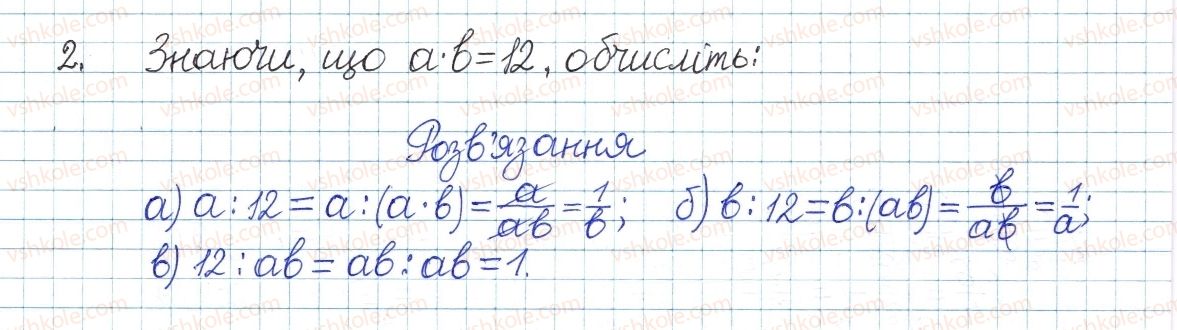 2. Знаючи, що a·b=12, обчисліть:
Розв'язання
а) a:12=a:(a·b)=a/ab=1/b; б) b:12=b:(ab)=b/ab=1/a;
в) 12:ab=ab:ab=1.